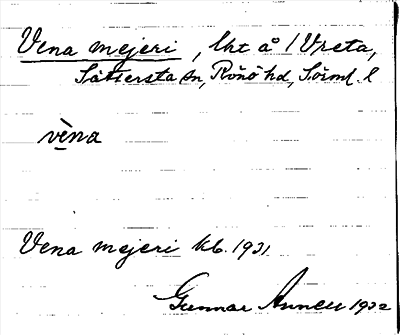 Vena mejeri, lht å 1 Vreta,
Sättersta sn, Rönö hd, Söml. l
vèna
Vena mejeri kb. 1931
Gunnar 1932